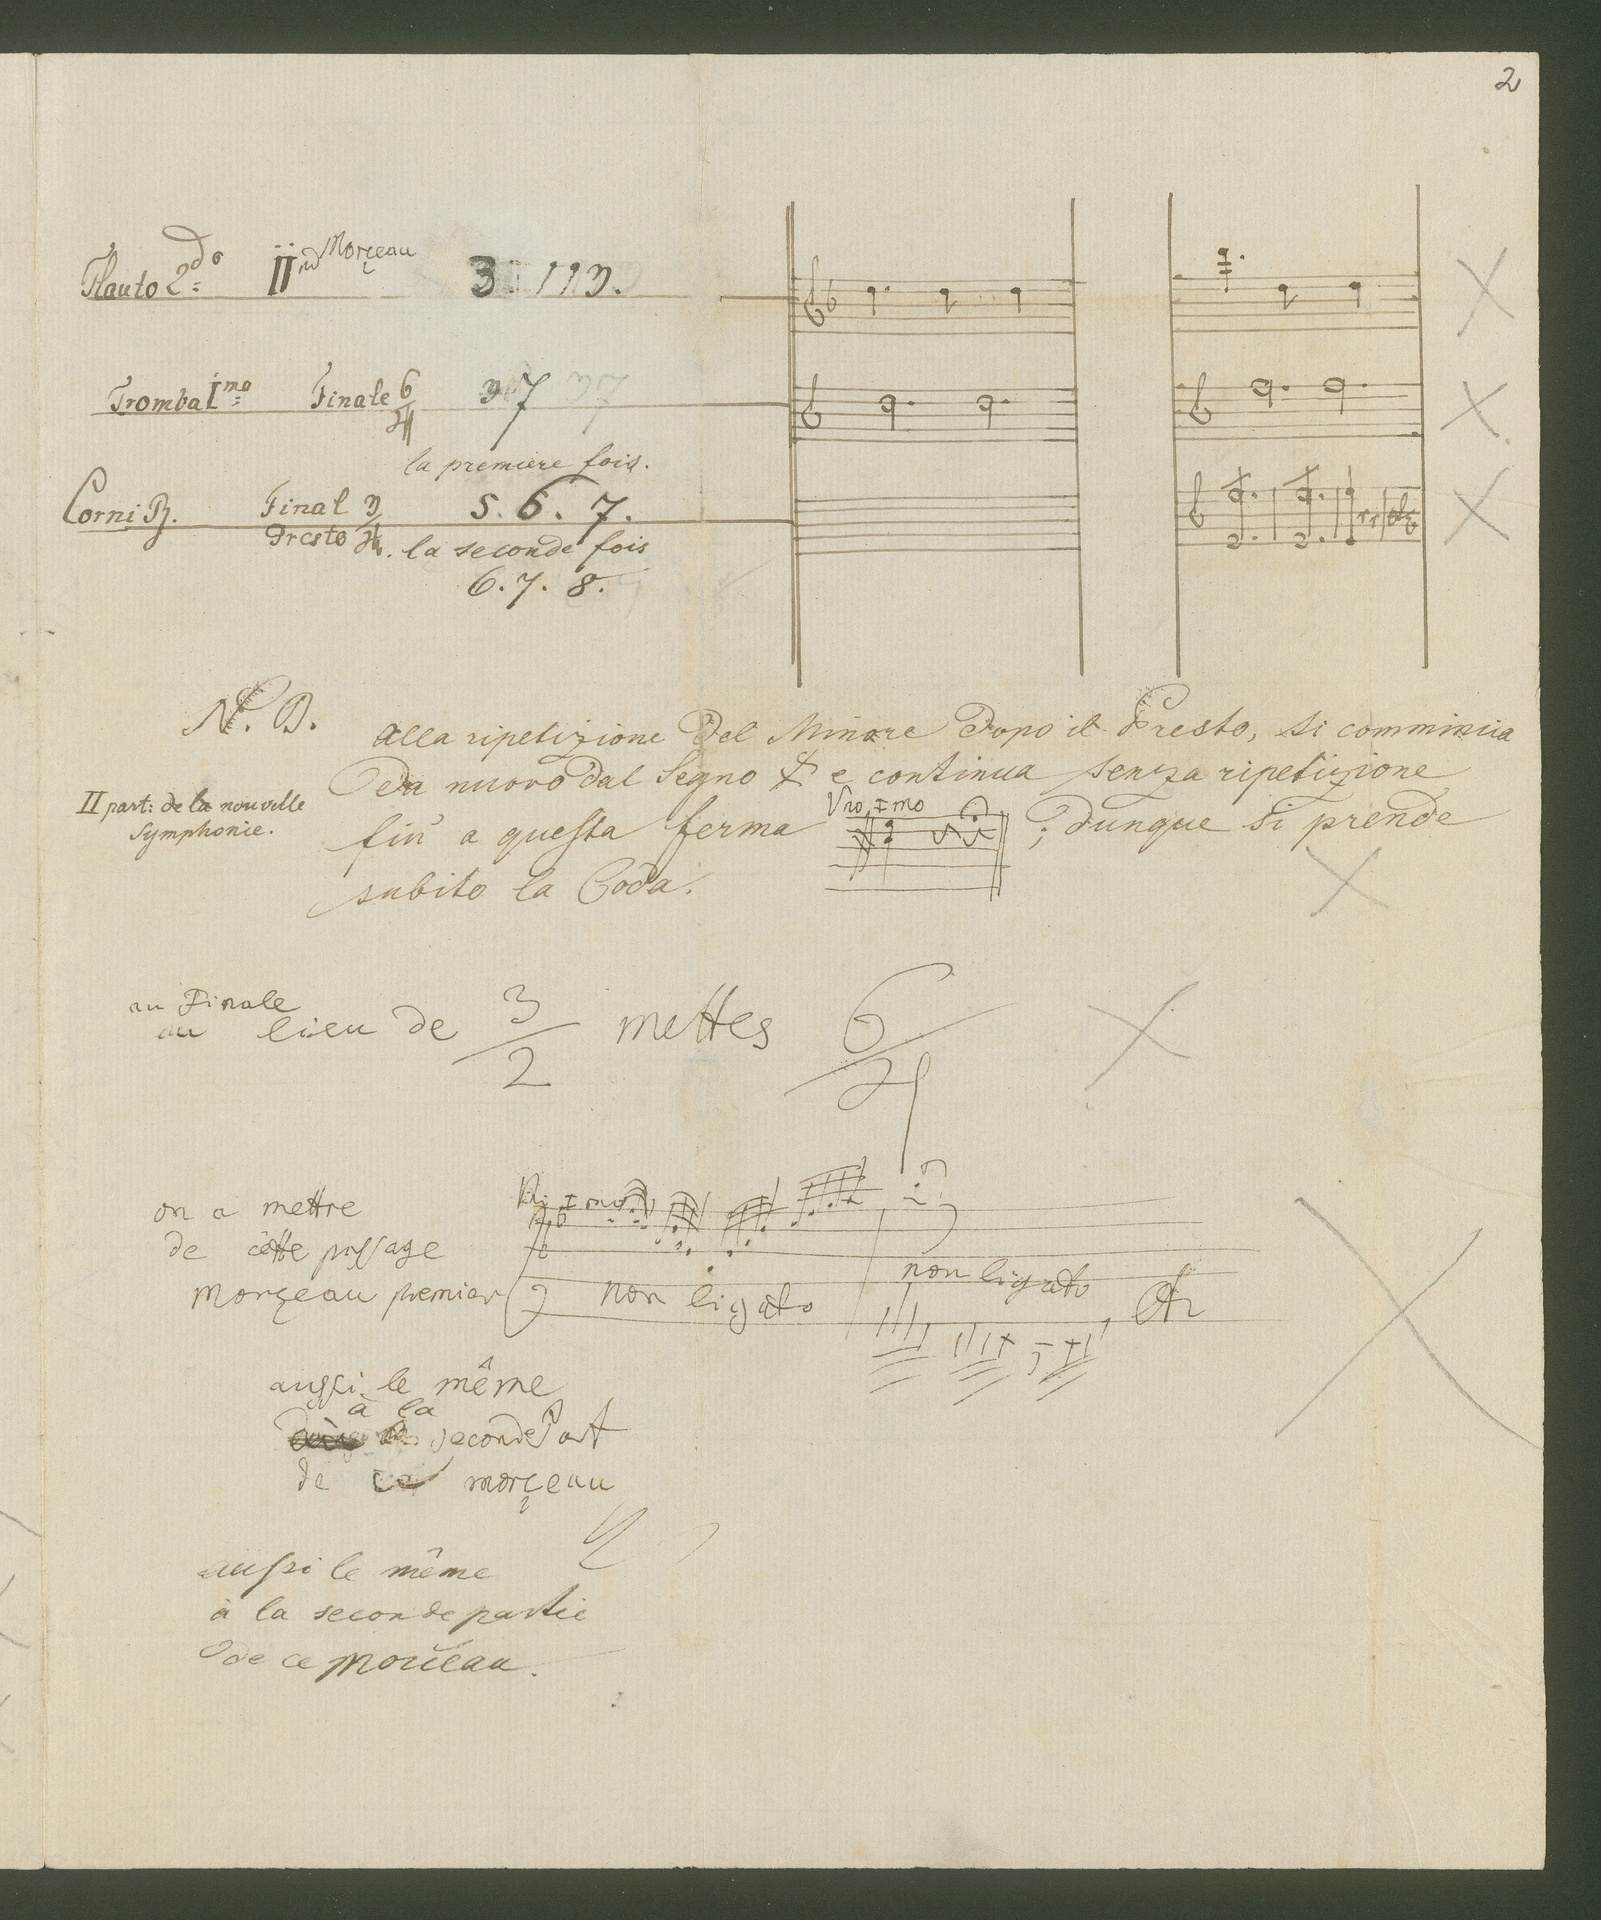 2
Flauto 2do IInd Morçeau 3 113.
Tromba Imo Finale 6/4 37
la premiere fois.
Corni B. Final 3/4 5. 6. 7.
Presto la seconde fois
6. 7. 8.
N. B. alla ripetizione Del Minore Dopo il Presto, si comminia
Da nuovo dal Segno e continua senza ripetizione
II part: de la nouvelle
Symphonie.
fin a questa ferma Vno Imo ; dunque si prende
subito la Coda.
au Finale
au lieu de 3/2 mettes 6/4
on a mettre
de cette passage
morçeau premier
Vni Imo
non ligato non ligato
aussi le même
à la
seconde Part
de ce morçeau
aussi le même
à la seconde partie
de ce morceau.